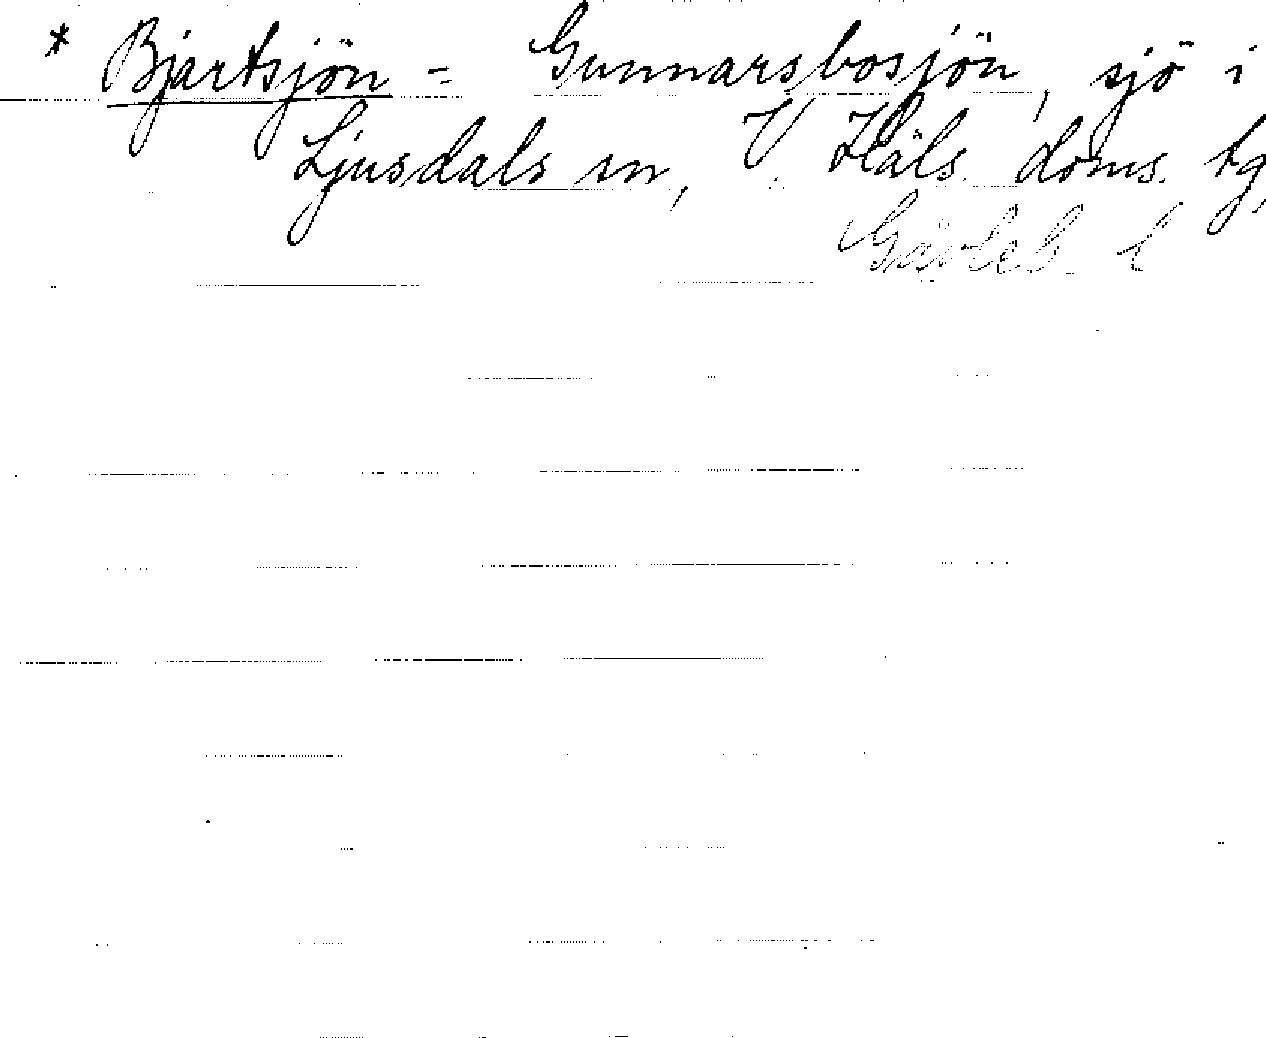 * Bjärtsjön = Gunnarsbosjön, sjö i
Ljusdals sn, V. Häls. doms. tg,
Gävleb. l